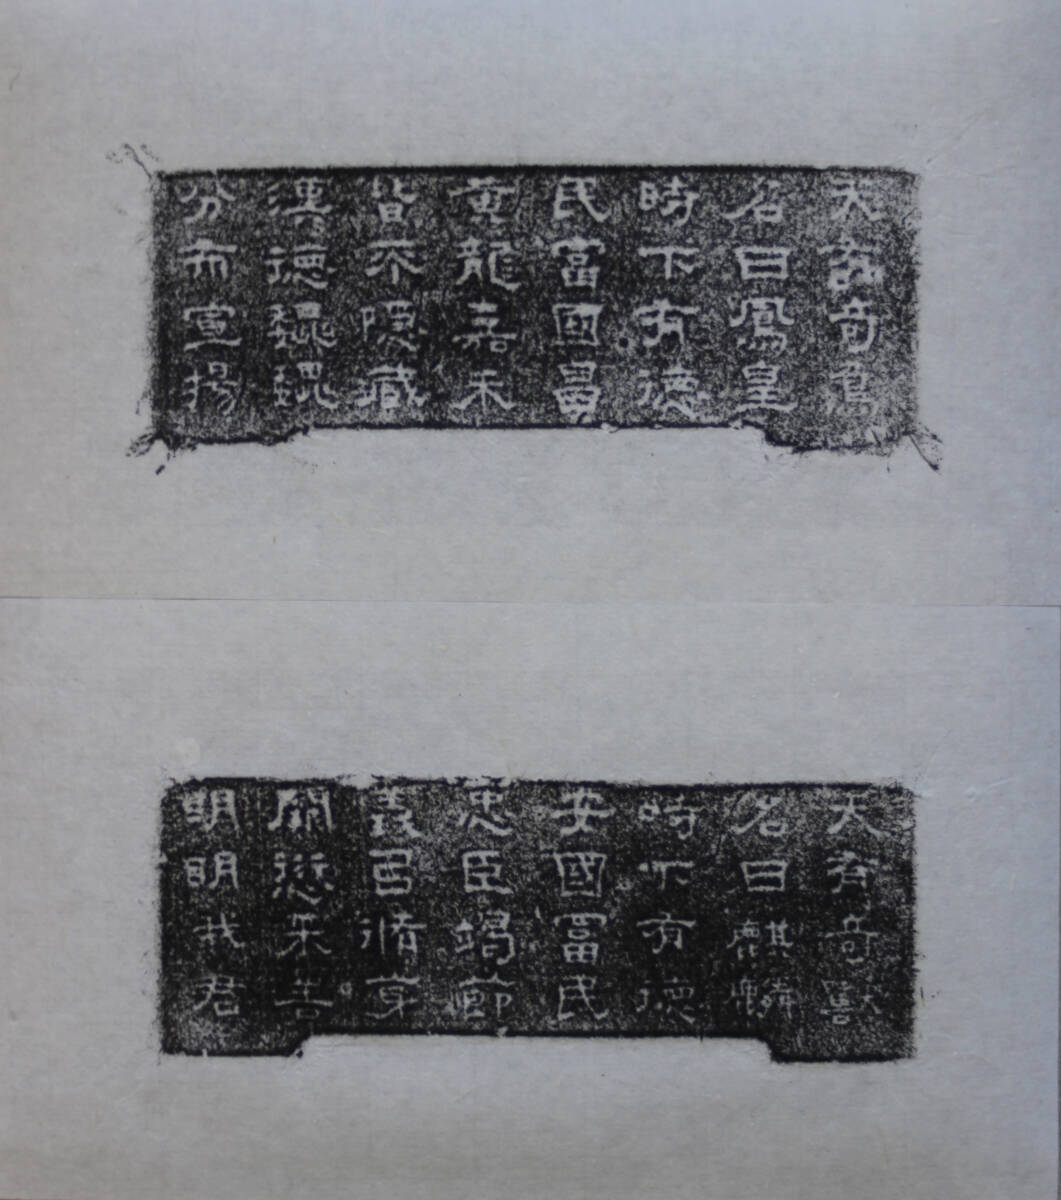 天有奇鳥
名曰鳳皇
時下有德
民富國昌
黃龍嘉禾
皆不隱藏
漢德巍巍
分布宣揚
天有奇獸
名曰麒麟
時下有德
安國富民
忠臣竭節
義以脩身
愆来善
明明我君